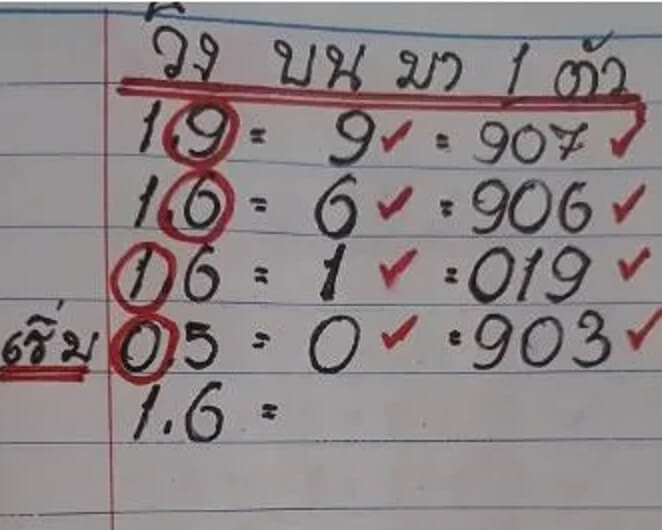 วิ่ง บน มา 1 ตัว
1.9 = 9 ✓ = 907 ✓
1.6 = 6 ✓ = 906 ✓
1.6 = 1 ✓ = 019 ✓
เริ่ม 0.5 = 0 ✓ = 903 ✓
1.6 =